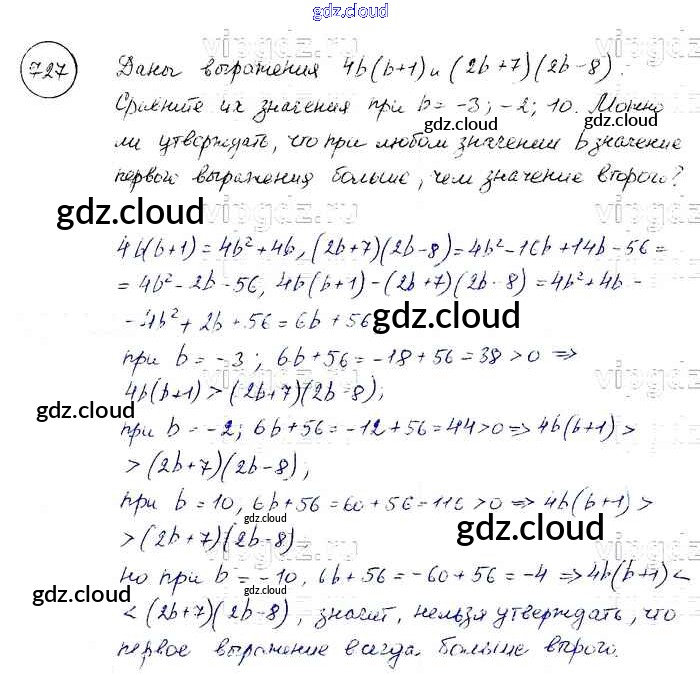 gdz.cloud
727 Даны выражения 4b(b+1) и (2b+7)(2b-8).
Сравните их значения при b = -3; -2; 10. Можно
gdz.cloud gdz.cloud
ли утверждать, что при любом значении b значение
первого выражения больше, чем значение второго?
gdz.cloud
4b(b+1) = 4b²+4b, (2b+7)(2b-8) = 4b²-16b+14b-56 =
= 4b²-2b-56, 4b(b+1)-(2b+7)(2b-8) = 4b²+4b-
-4b²+2b+56 = 6b+56
gdz.cloud
при b = -3; 6b+56 = -18+56 = 38 > 0 ⇒
4b(b+1) > (2b+7)(2b-8);
gdz.cloud
при b = -2; 6b+56 = -12+56 = 44 > 0 ⇒ 4b(b+1) >
> (2b+7)(2b-8);
при b = 10, 6b+56 = 60+56 = 116 > 0 ⇒ 4b(b+1) >
gdz.cloud gdz.cloud
> (2b+7)(2b-8)
но при b = -10, 6b+56 = -60+56 = -4 ⇒ 4b(b+1) <
gdz.cloud gdz.cloud
< (2b+7)(2b-8), значит, нельзя утверждать, что
первое выражение всегда больше второго.